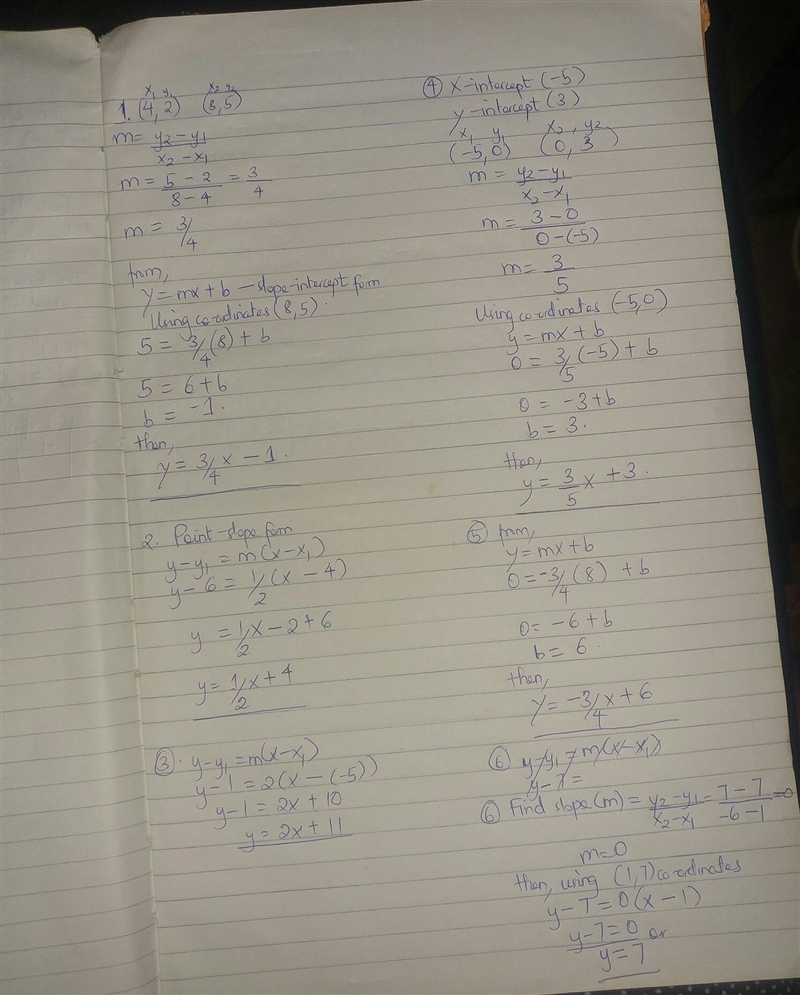 x₁ y₁ x₂ y₂
1. (4, 2) (8, 5)
m = y₂ − y₁ / x₂ − x₁
m = 5 − 2 / 8 − 4 = 3/4
m = 3/4
from,
y = mx + b — slope-intercept form
Using co-ordinates (8, 5).
5 = 3/4 (8) + b
5 = 6 + b
b = −1.
then,
y = 3/4 x − 1.
2. Point-slope form
y − y₁ = m(x − x₁)
y − 6 = 1/2 (x − 4)
y = 1/2 x − 2 + 6
y = 1/2 x + 4
③. y − y₁ = m(x − x₁)
y − 1 = 2(x − (−5))
y − 1 = 2x + 10
y = 2x + 11
④ X-intercept (−5)
y-intercept (3)
x₁ y₁ x₂, y₂
(−5, 0) (0, 3)
m = y₂ − y₁ / x₂ − x₁
m = 3 − 0 / 0 − (−5)
m = 3/5
Using co-ordinates (−5, 0)
y = mx + b
0 = 3/5 (−5) + b
0 = −3 + b
b = 3.
then,
y = 3/5 x + 3.
⑤ from,
y = mx + b
0 = −3/4 (8) + b
0 = −6 + b
b = 6.
then,
y = −3/4 x + 6
⑥ y − y₁ = m(x − x₁)
y − 7 =
⑥ Find slope (m) = y₂ − y₁ / x₂ − x₁ = 7 − 7 / −6 − 1 = 0
m = 0
then, using (1, 7) co-ordinates
y − 7 = 0 (x − 1)
y − 7 = 0 or
y = 7